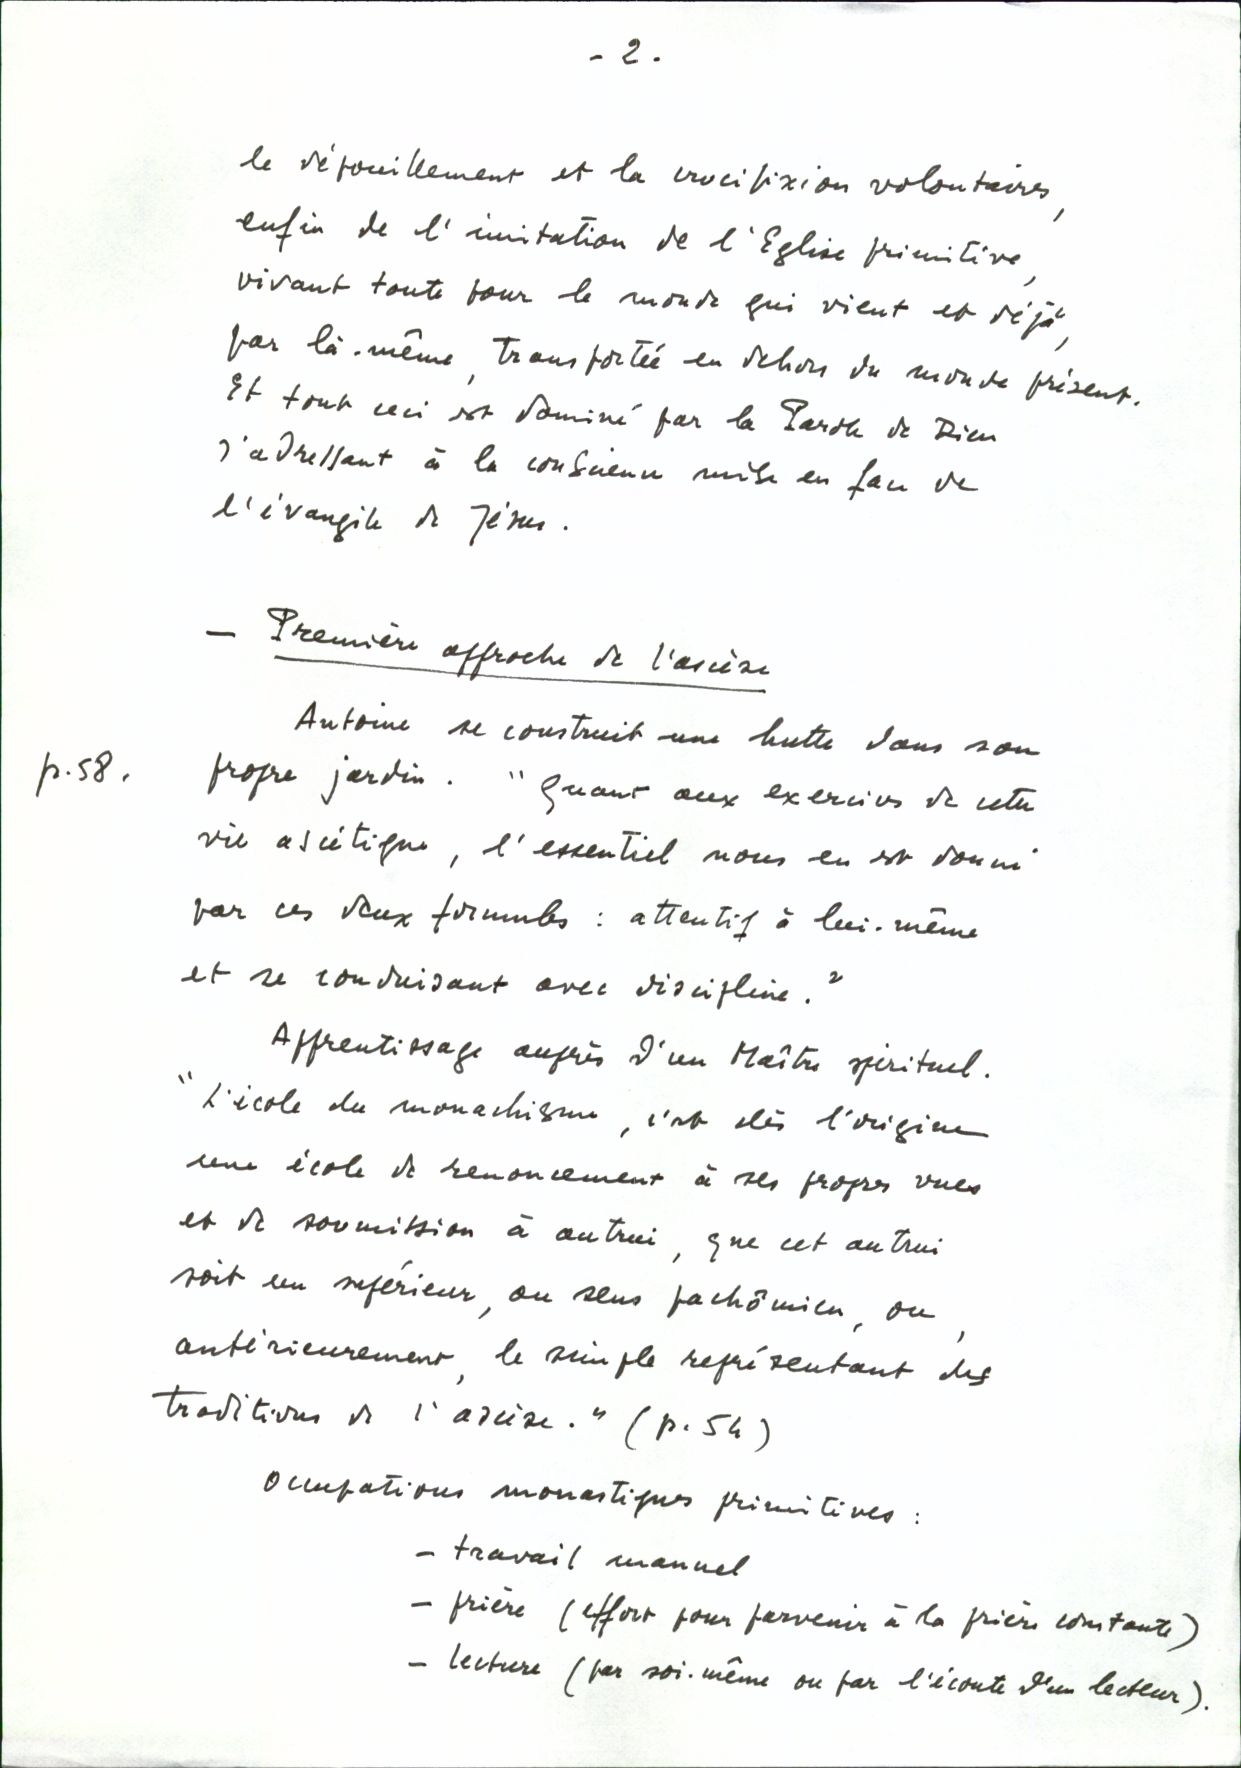 - 2 .
le dépouillement et la crucifixion volontaires,
enfin de l'imitation de l'Eglise primitive,
vivant toute pour le monde qui vient et déjà,
par là-même, transportée en dehors du monde présent.
Et tout ceci est dominé par la Parole de Dieu
s'adressant à la conscience mise en face de
l'évangile de Jésus.
— Première approche de l'ascèse
Antoine se construit une hutte dans son
p.58. propre jardin. "Quant aux exercices de cette
vie ascétique, l'essentiel nous en est donné
par ces deux formules : attentif à lui-même
et se conduisant avec discipline."
Apprentissage auprès d'un Maître spirituel.
"L'école du monachisme, c'est dès l'origine
une école de renoncement à ses propres vues
et de soumission à autrui, que cet autrui
soit un supérieur, au sens pachômien, ou,
antérieurement, le simple représentant des
traditions de l'ascèse." (p.54)
Occupations monastiques primitives :
— travail manuel
— prière (effort pour parvenir à la prière constante)
— lecture (par soi-même ou par l'écoute d'un lecteur).